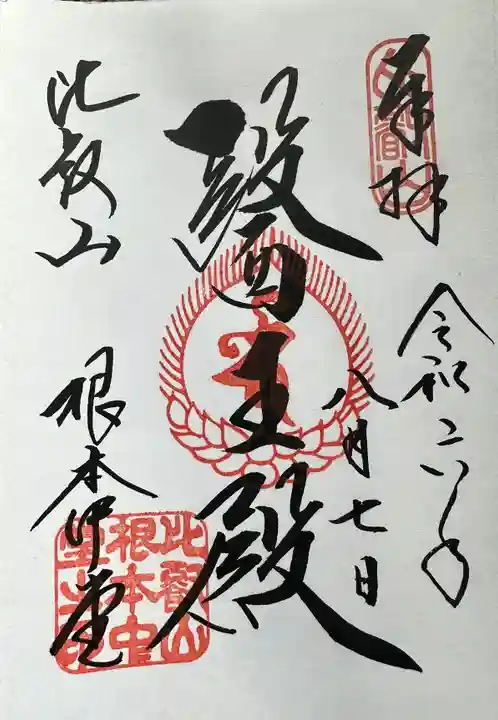 奉拝
比叡山
令和六年
八月七日
醫王殿
比叡山
根本中堂
比叡山
根本中
堂之印